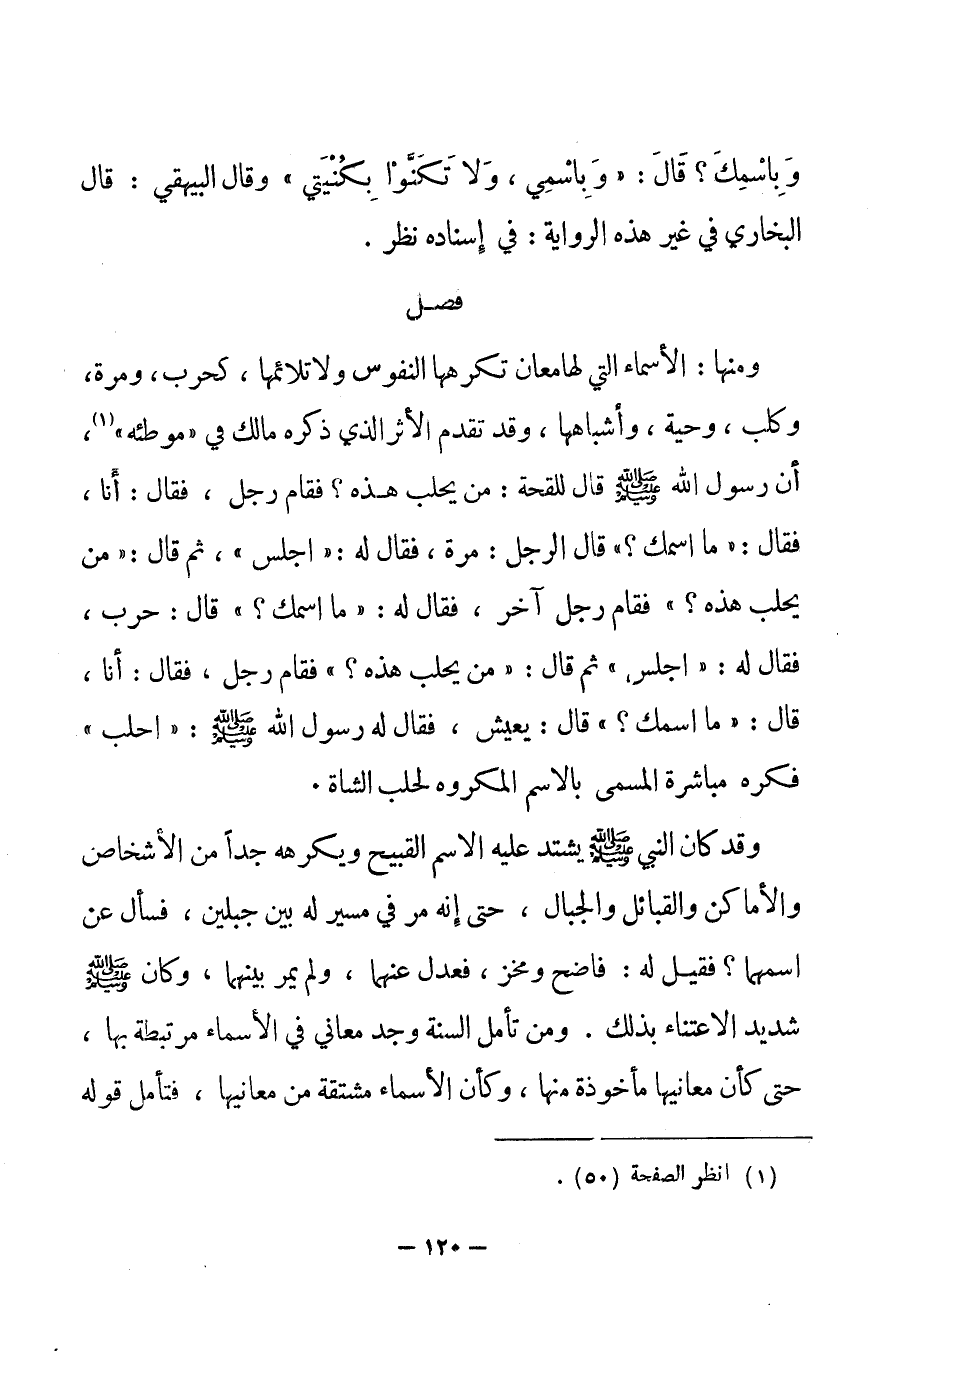 وَبِاسْمِكَ ؟ قَالَ : « وَبِاسْمِي ، وَلا تَكَنَّوْا بِكُنْيَتِي » وقال البيهقي : قال
البخاري في غير هذه الرواية : في إسناده نظر .
فصل
ومنها : الأسماء التي لها معان تكرهها النفوس ولا تلائمها ، كحرب ، ومرة،
وكلب ، وحية ، وأشباهها ، وقد تقدم الأثر الذي ذكره مالك في «موطئه»(١)،
أن رسول الله ﷺ قال للقحة : من يحلب هذه ؟ فقام رجل ، فقال : أنا ،
فقال : « ما اسمك ؟» قال الرجل : مرة ، فقال له : « اجلس » ، ثم قال : « من
يحلب هذه ؟ » فقام رجل آخر ، فقال له : « ما اسمك ؟ » قال : حرب ،
فقال له : « اجلس » ثم قال : « من يحلب هذه ؟ » فقام رجل ، فقال : أنا ،
قال : « ما اسمك ؟ » قال : يعيش ، فقال له رسول الله ﷺ : « احلب »
فكره مباشرة المسمى بالاسم المكروه لحلب الشاة .
وقد كان النبي ﷺ يشتد عليه الاسم القبيح ويكرهه جداً من الأشخاص
والأماكن والقبائل والجبال ، حتى إنه مر في مسير له بين جبلين ، فسأل عن
اسمها ؟ فقيل له : فاضح ومخز ، فعدل عنها ، ولم يمر بينها ، وكان ﷺ
شديد الاعتناء بذلك . ومن تأمل السنة وجد معاني في الأسماء مرتبطة بها ،
حتى كأن معانيها مأخوذة منها ، وكأن الأسماء مشتقة من معانيها ، فتأمل قوله
(١) انظر الصفحة (٥٠) .
– ١٢٠ –